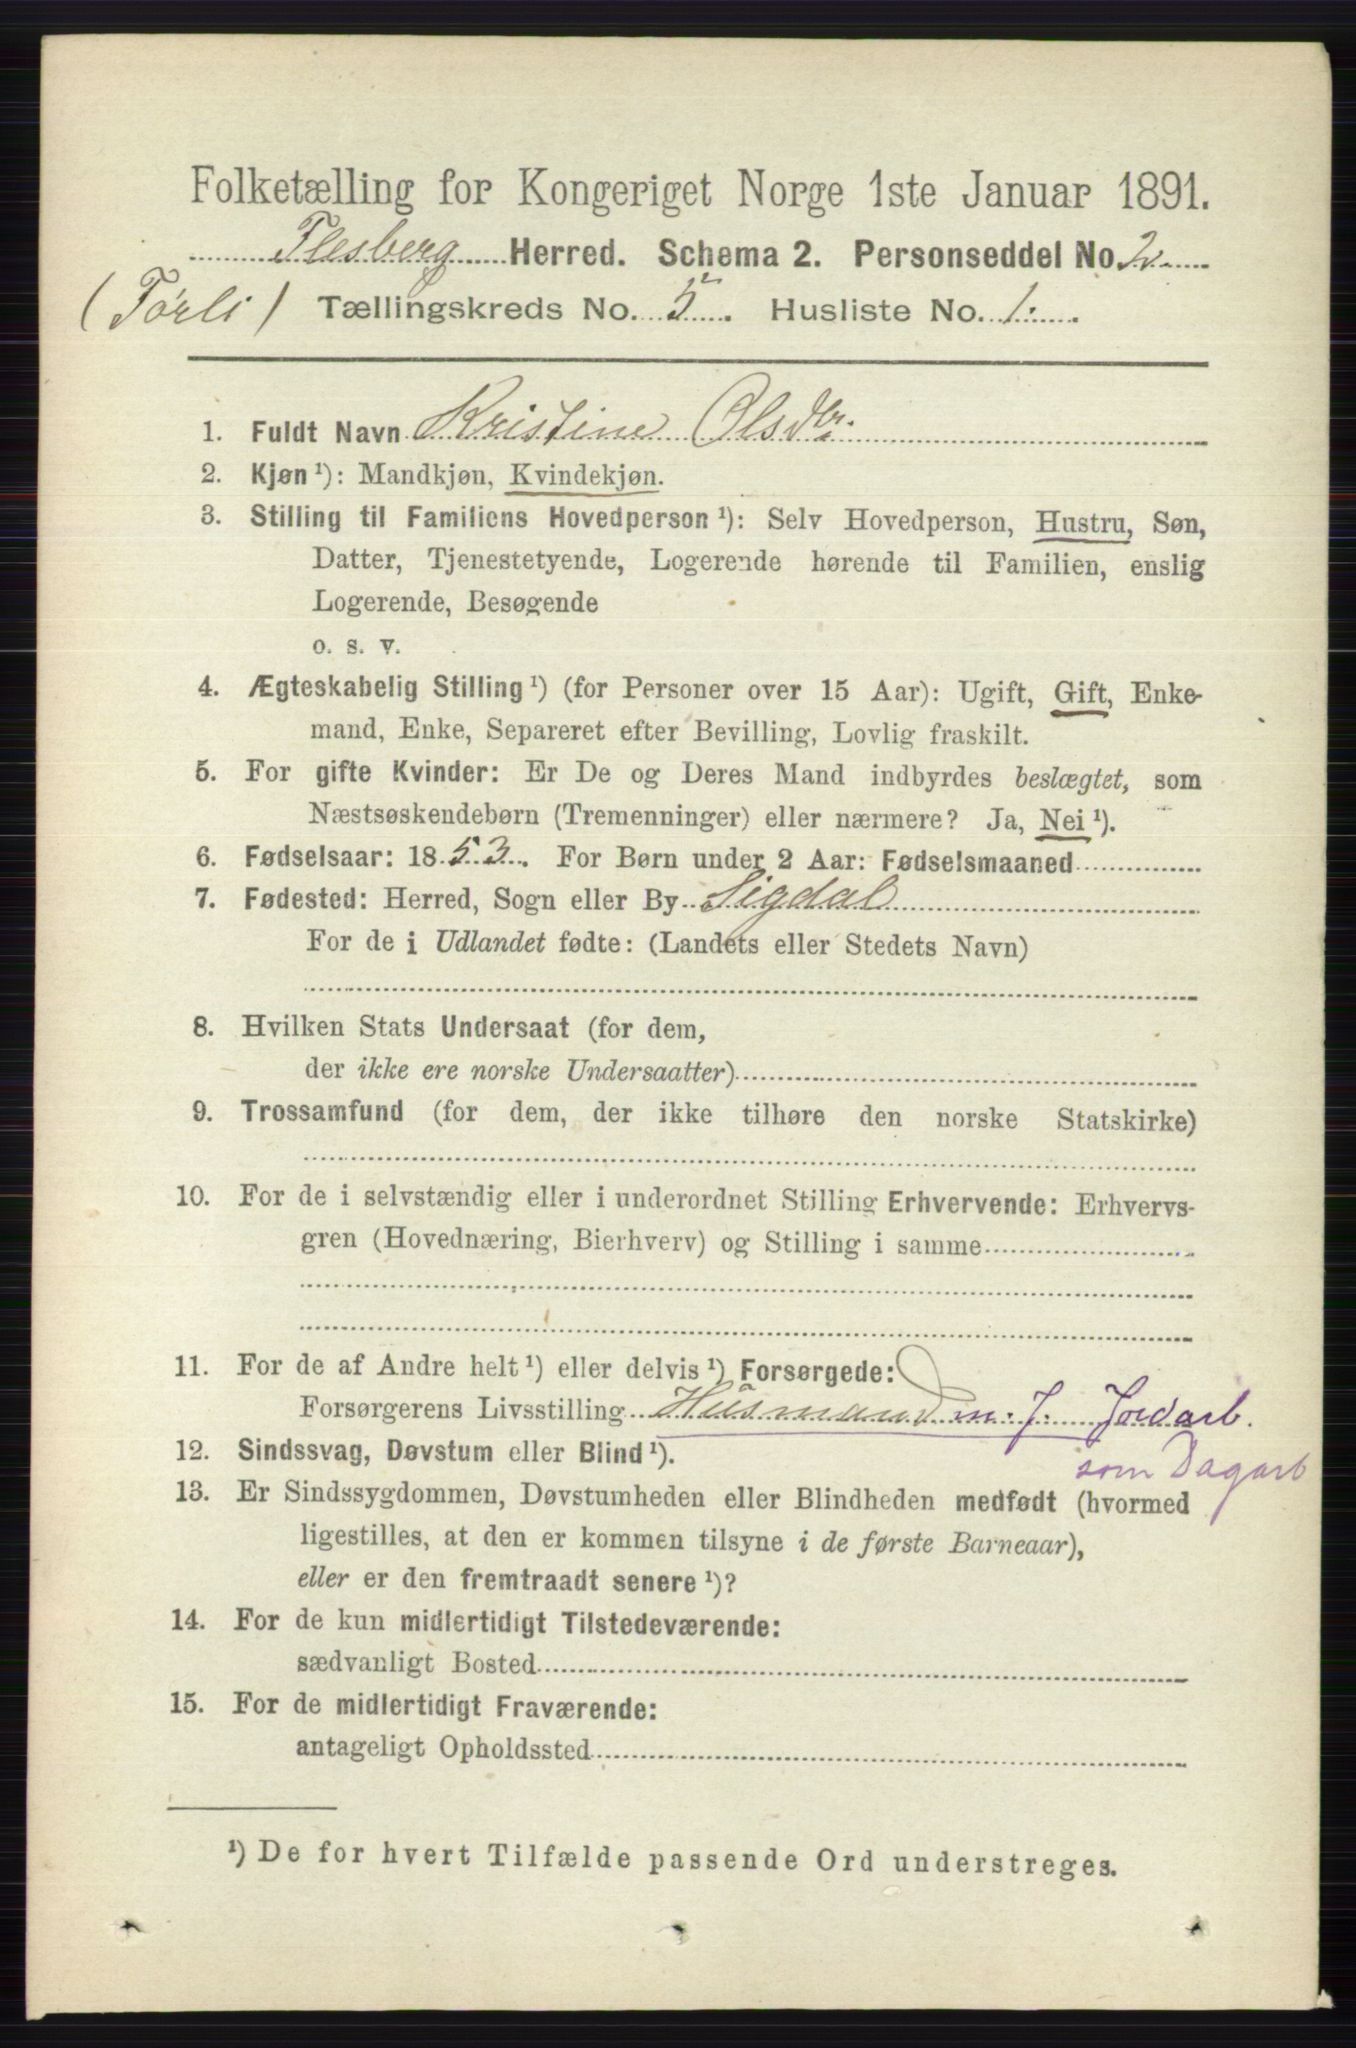 Folketælling for Kongeriget Norge 1ste Januar 1891.
Flesberg Herred. Schema 2. Personseddel No. 2
(Førli) Tællingskreds No. 5. Husliste No. 1.
1. Fuldt Navn Kristine Olsdtr.
2. Kjøn ¹): Mandkjøn, Kvindekjøn.
3. Stilling til Familiens Hovedperson ¹): Selv Hovedperson, Hustru, Søn,
Datter, Tjenestetyende, Logerende hørende til Familien, enslig
Logerende, Besøgende
o. s. v.
4. Ægteskabelig Stilling ¹) (for Personer over 15 Aar): Ugift, Gift, Enke-
mand, Enke, Separeret efter Bevilling, Lovlig fraskilt.
5. For gifte Kvinder: Er De og Deres Mand indbyrdes beslægtet, som
Næstsøskendebørn (Tremenninger) eller nærmere? Ja, Nei ¹).
6. Fødselsaar: 1853. For Børn under 2 Aar: Fødselsmaaned
7. Fødested: Herred, Sogn eller By Sigdal
For de i Udlandet fødte: (Landets eller Stedets Navn)
8. Hvilken Stats Undersaat (for dem,
der ikke ere norske Undersaatter)
9. Trossamfund (for dem, der ikke tilhøre den norske Statskirke)
10. For de i selvstændig eller i underordnet Stilling Erhvervende: Erhvervs-
gren (Hovednæring, Bierhverv) og Stilling i samme
11. For de af Andre helt ¹) eller delvis ¹) Forsørgede:
Forsørgerens Livsstilling Husmand m. J. Jordarb.
som Dagarb
12. Sindssvag, Døvstum eller Blind ¹).
13. Er Sindssygdommen, Døvstumheden eller Blindheden medfødt (hvormed
ligestilles, at den er kommen tilsyne i de første Barneaar),
eller er den fremtraadt senere ¹)?
14. For de kun midlertidigt Tilstedeværende:
sædvanligt Bosted
15. For de midlertidigt Fraværende:
antageligt Opholdssted
¹) De for hvert Tilfælde passende Ord understreges.